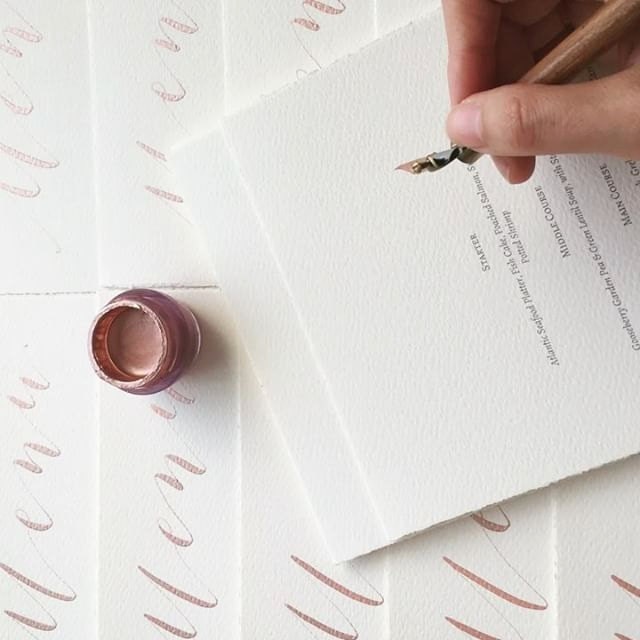 Men
Menu
Menu
STARTER
Atlantic Seafood Platter, Fish Cake, Poached Salmon, S
Potted Shrimp
MIDDLE COURSE
Garden Pea & Green Lentil Soup, with
MAIN COURSE